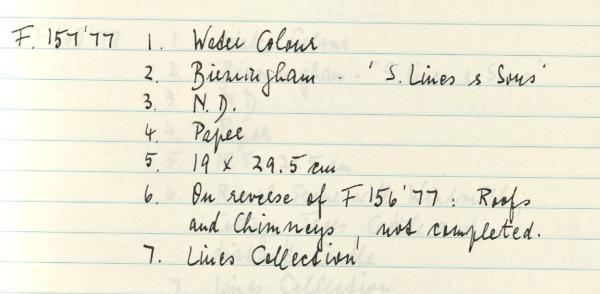 F. 157'77 1. Water Colour
2. Birmingham - 'S. Lines & Sons'
3. N.D.
4. Paper
5. 19 x 29.5 cm
6. On reverse of F 156'77: Roofs
and Chimneys, not completed.
7. Lines Collection